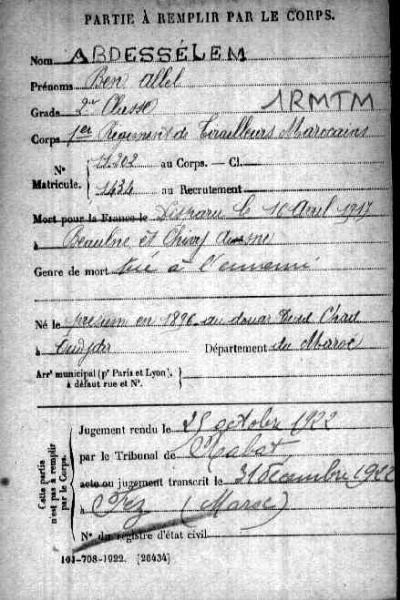 PARTIE À REMPLIR PAR LE CORPS.
Nom ABDESSÉLEM
Prénoms Ben Allel
Grade 2e Classe
1RMTM
Corps 1er Régiment de Tirailleurs Marocains
N° Matricule. 11.202 au Corps. — Cl.
1434 au Recrutement
Mort pour la France le Disparu le 16 Avril 1917
à Beaulne et Chivy Aisne
Genre de mort tué à l'ennemi
Né le présumé en 1896 au douar
à Oudjda Département du Maroc
Arrt municipal (pr Paris et Lyon), à défaut rue et N°.
Cette partie n'est pas à remplir par le Corps.
Jugement rendu le 25 octobre 1922
par le Tribunal de Rabat
acte ou jugement transcrit le 31 décembre 1922
à Fez (Maroc)
N° du registre d'état civil
101-708-1922. [26434]